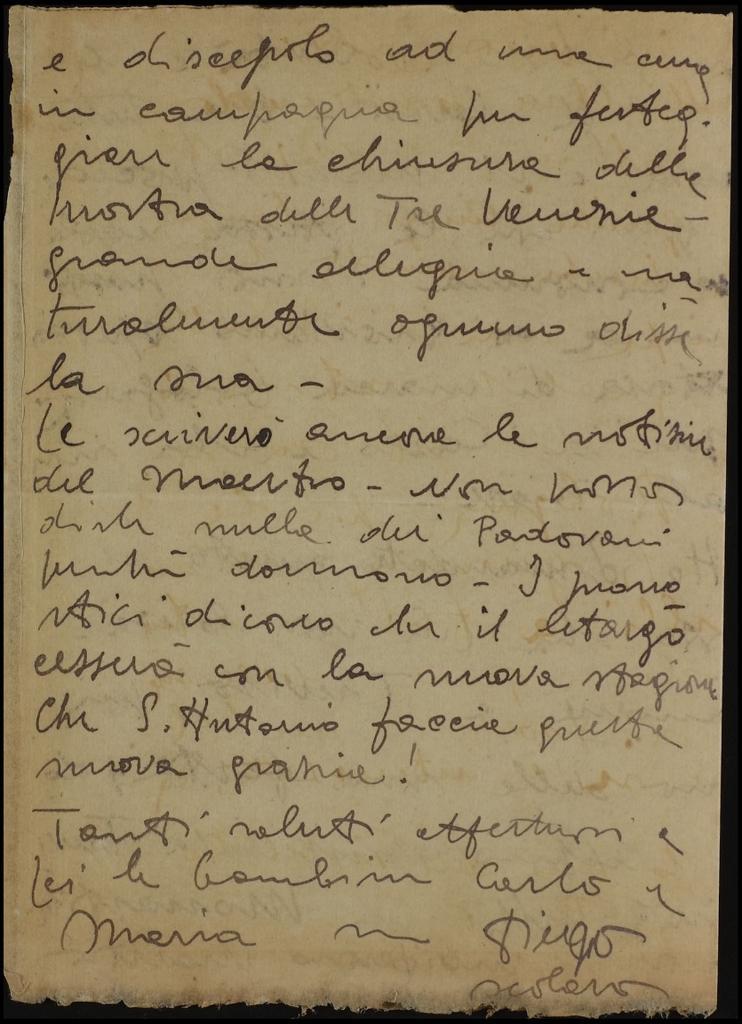 e discepolo ad una cena
in campagna per festeg-
giare la chiusura della
mostra delle Tre Venezie -
grande allegria e na
turalmente ognuno disse
la sua -
Le scriverò ancora le notizie
del Maestro - Non posso
dirle nulla dei Padovani
perché dormono - I prono
stici dicono che il letargo
cesserà con la nuova stagione
Che S. Antonio faccia questa
nuova grazia!
Tanti saluti affettuosi a
Lei le bambine Carlo e
Maria Diego
scolaro